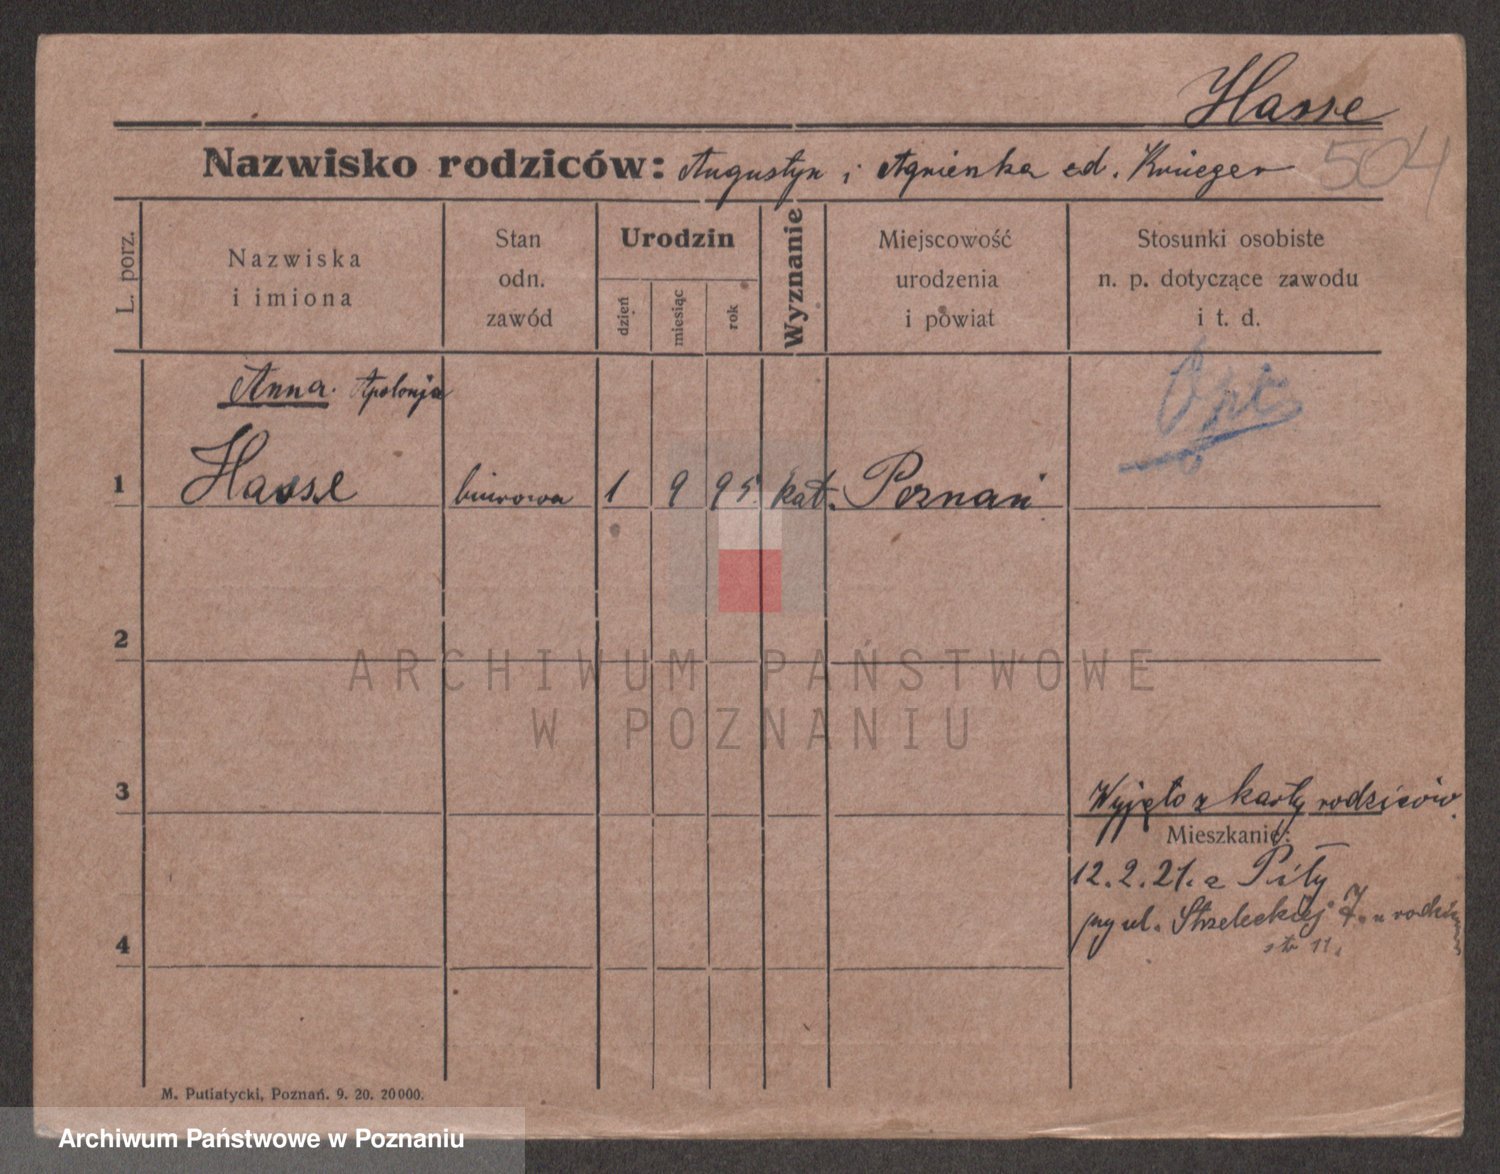 Hasse
Nazwisko rodziców: Augustyn i Agnieszka od. Krieger 504
L. porz.
Nazwiska
i imiona
Stan
odn.
zawód
Urodzin
dzień
miesiąc
rok
Wyznanie
Miejscowość
urodzenia
i powiat
Stosunki osobiste
n. p. dotyczące zawodu
i t. d.
Anna Apolonja
Opt
1 Hasse biurowa 1 9 95. kat. Poznań
2
ARCHIWUM PAŃSTWOWE
W POZNANIU
3
Wyjęto z karty rodziców.
Mieszkanie:
12.2.21. z Piły
przy ul. Strzeleckiej 7. u rodziców
str 11.
4
M. Putiatycki, Poznań. 9. 20. 20000.
Archiwum Państwowe w Poznaniu